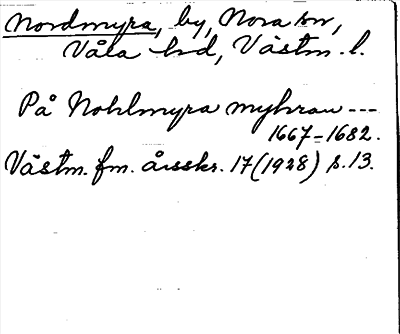 Nordmyra, by, Nora sn,
Våla hd, Västm. l.
På Nohlmyra myhran ---
1667-1682.
Västm. fm. årsskr. 17 (1928) s. 13.